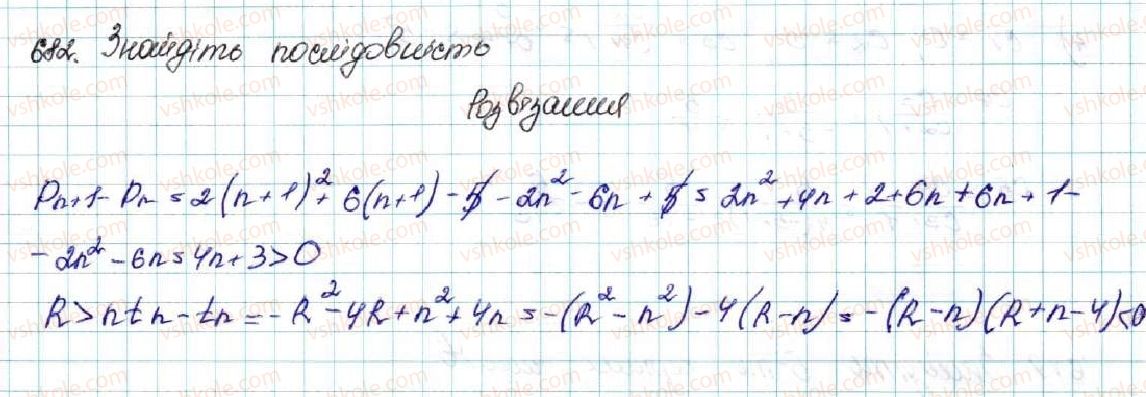 682. Знайдіть послідовність
Розв'язання
Pn+1 - Pn = 2(n+1)² + 6(n+1) - 5 - 2n² - 6n + 5 = 2n² + 4n + 2 + 6n + 6n + 1 -
- 2n² - 6n = 4n + 3 > 0
R > n tn - tn = - R² - 4R + n² + 4n = -(R² - n²) - 4(R - n) = -(R - n)(R + n - 4) < 0